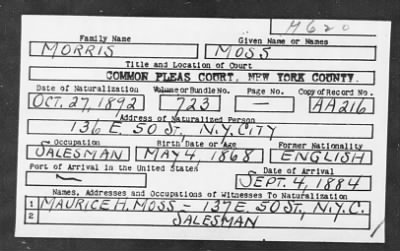 M620
Family Name Given Name or Names
MORRIS MOSS
Title and Location of Court
COMMON PLEAS COURT, NEW YORK COUNTY.
Date of Naturalization Volume or Bundle No. Page No. Copy of Record No.
OCT. 27, 1892 723 — AA216
Address of Naturalized Person
136 E. 50 ST., N.Y. CITY
Occupation Birth Date or Age Former Nationality
SALESMAN MAY 4, 1868 ENGLISH
Port of Arrival in the United States Date of Arrival
— SEPT. 4, 1884
Names, Addresses and Occupations of Witnesses To Naturalization
1 MAURICE H. MOSS - 137 E. 50 ST., N.Y.C.
2 SALESMAN